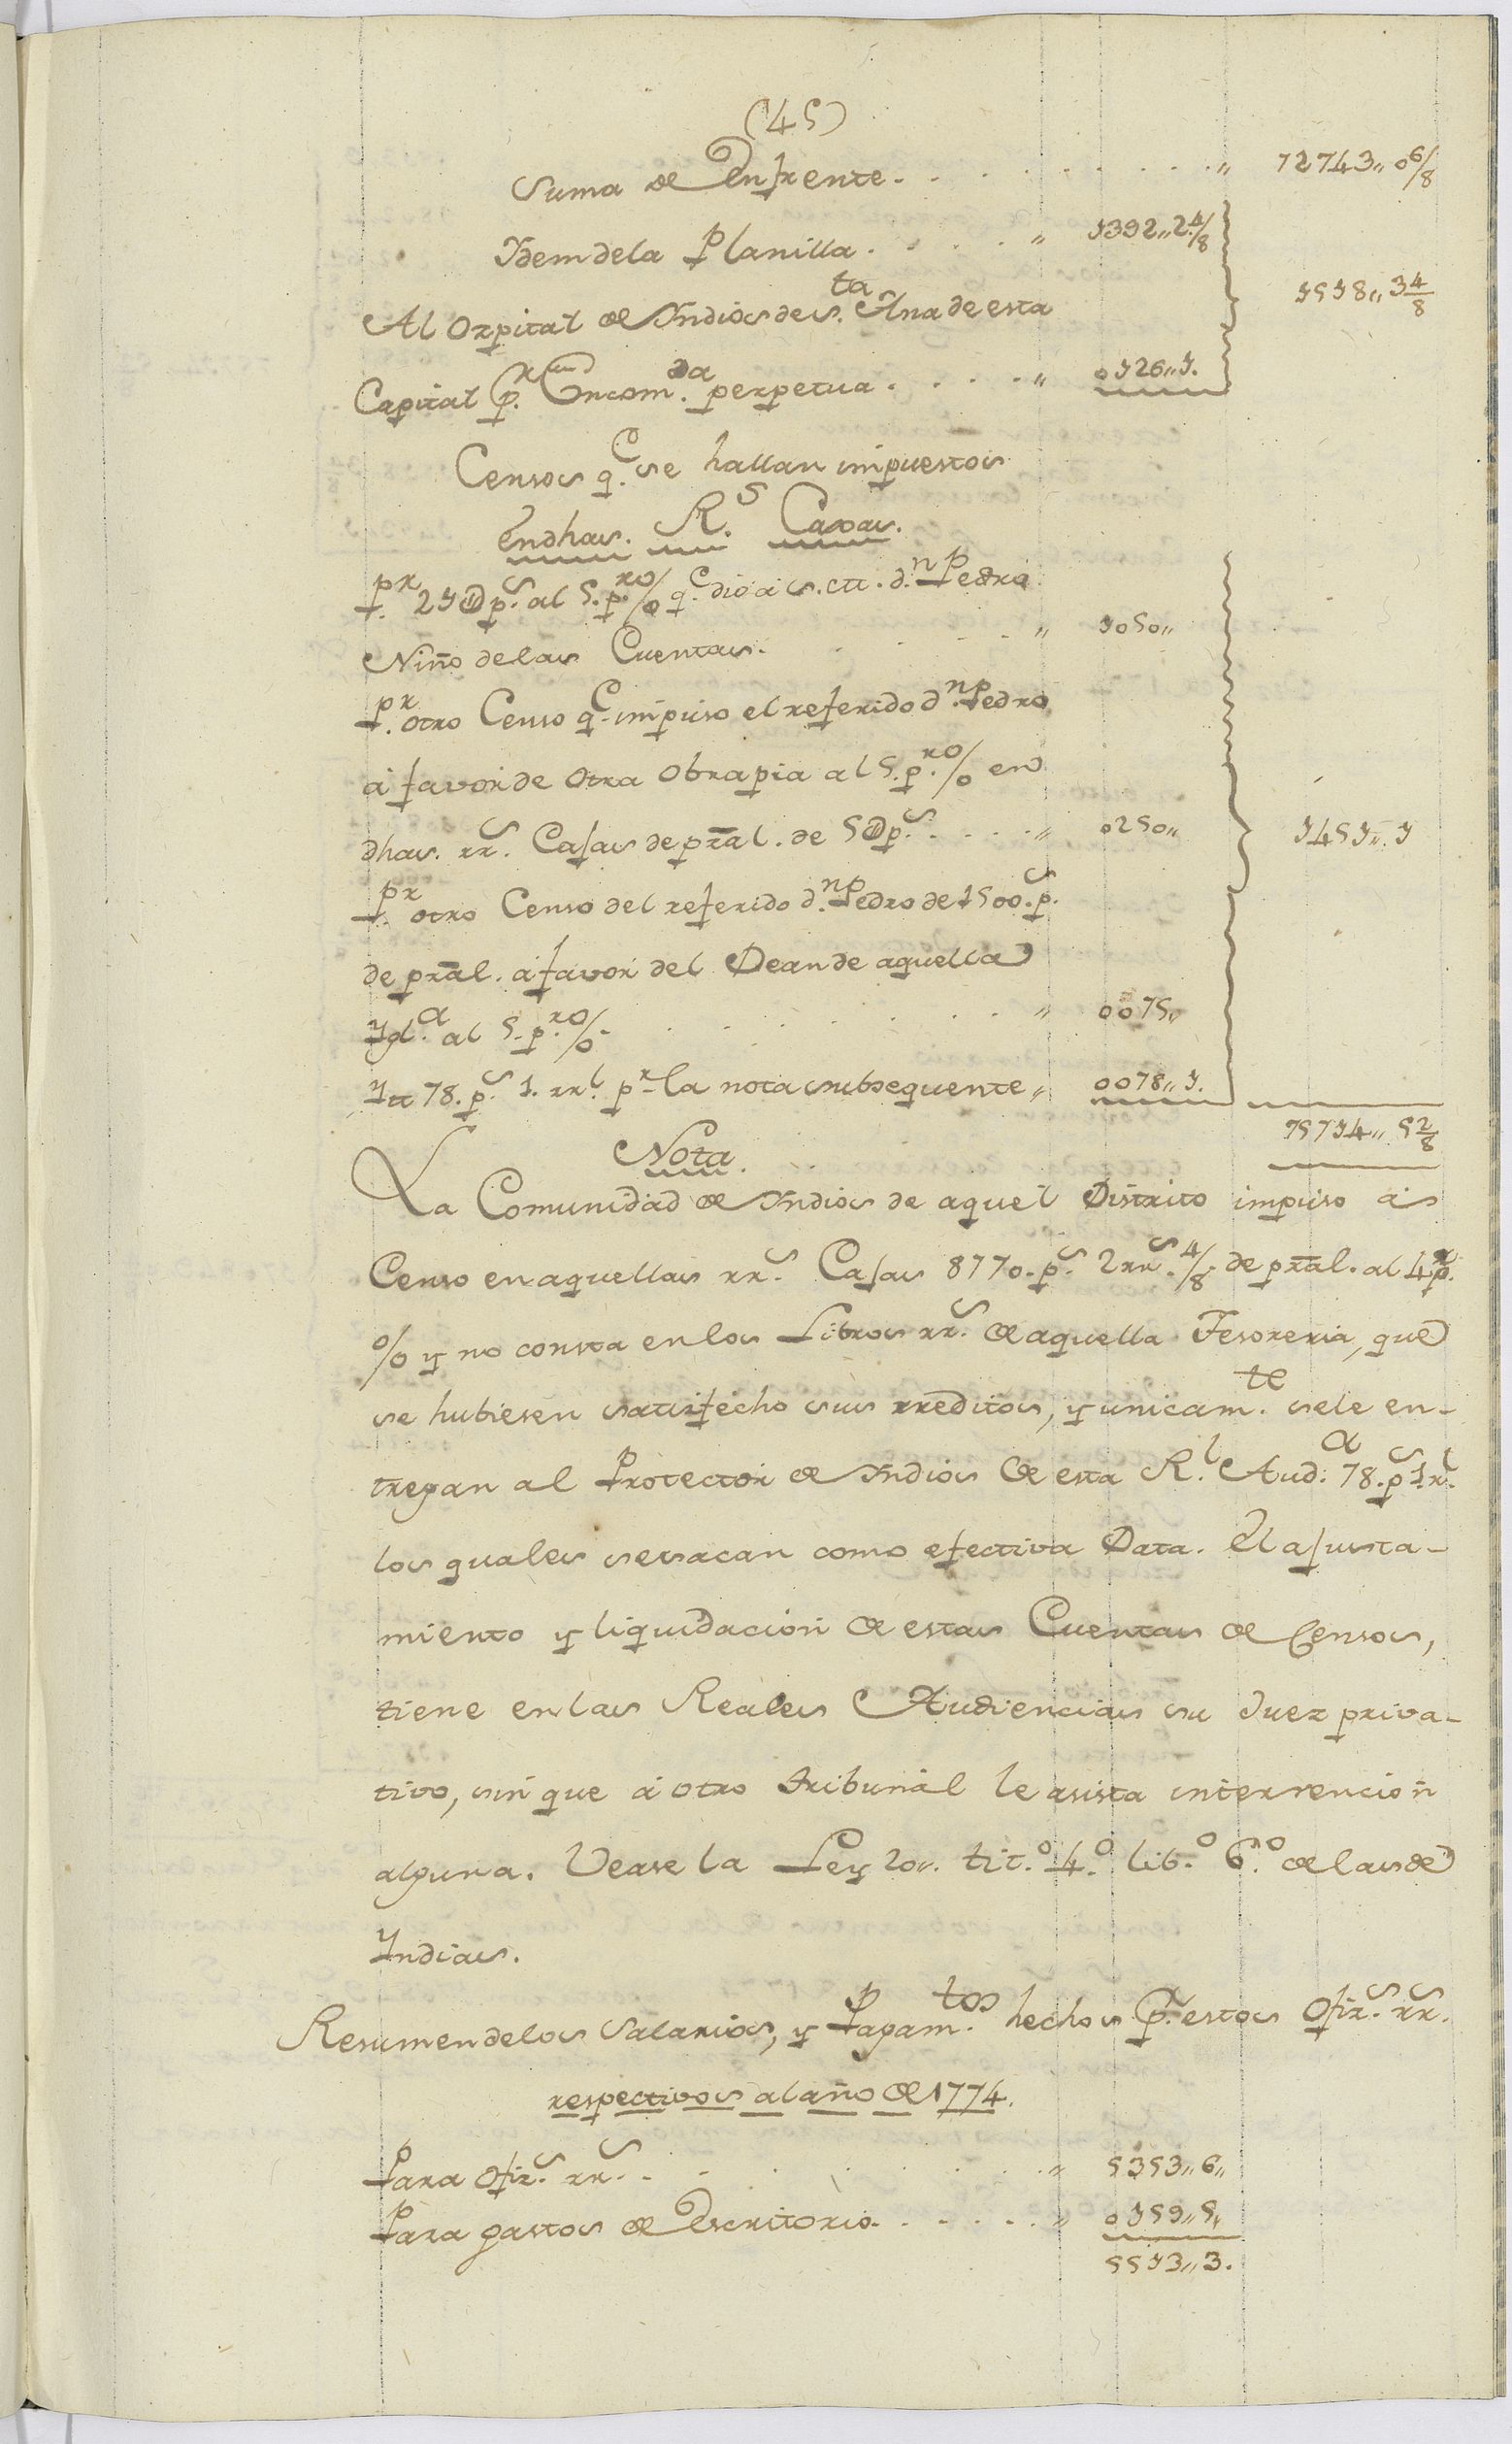 (45)
Suma de Enfrente . . . . . . . . . " 12743,, 06/8
Ydem dela Planilla . . . . . " 1392,, 2.4/8
1518,, 3 4/8
Al Ospital de Yndios de S.ta Ana de esta
Capital p.r Encom.da perpetua . . . . . " 0126,, 1.
Censos q.e se hallan impuestos
en dhas. R.s Caxas.
p.r 21 @ p.s al 5. p.ro % q.e dio a S. ctt. d.n Pedro
Niño delas Cuentas. . . . . " 1050,,
p.r otro Censo q.e impuso el referido d.n Pedro
á favor de otra obrapia al 5. p.ro % en
dhas. rr.s Casas de pral. de 5 @ p.s . . . . . " 0250,, 1453,, 1
p.r otro Censo del referido d.n Pedro de 1500. p.s
de pral. á favor del Dean de aquella
Ygl.a al 5. p.ro % . . . . . . . . " 0075,,
Ytt 78. p.s 1. rr.l p.r la nota subsequente " 0078,, 1.
15714,, 5 2/8
Nota.
La Comunidad de Yndios de aquel Distrito impuso á
Censo en aquellas rr.s Casas 8770. p.s 2 rr.s 4/8 de pral. al 4 p.r
% y no consta en los Libros rr.s de aquella Tesoreria, que
se hubiesen satisfecho sus rreditos, y unicam.te sele en-
tregan al Protector de Yndios de esta R.l Aud.a 78. p.s 1 r.l
los quales se sacan como efectiva Data. El ajusta-
miento y liquidación de estas Cuentas de Censos,
tiene en las Reales Audiencias su Juez priva-
tivo, sin que á otro tribunál le asista intervención
alguna. Vease la Ley 20,, tit.o 4.o lib.o 6.o de las de
Yndias.
Resumen delos Salarios, y Pagam.tos hechos p.r estos Ofiz.s rr.s
respectivos al año de 1774.
Para Ofiz.s rr.s . . . . . . . . " 5353,, 6,,
Para gastos de Escritorio . . . . . . " 0159,, 5,,
5513,, 3.